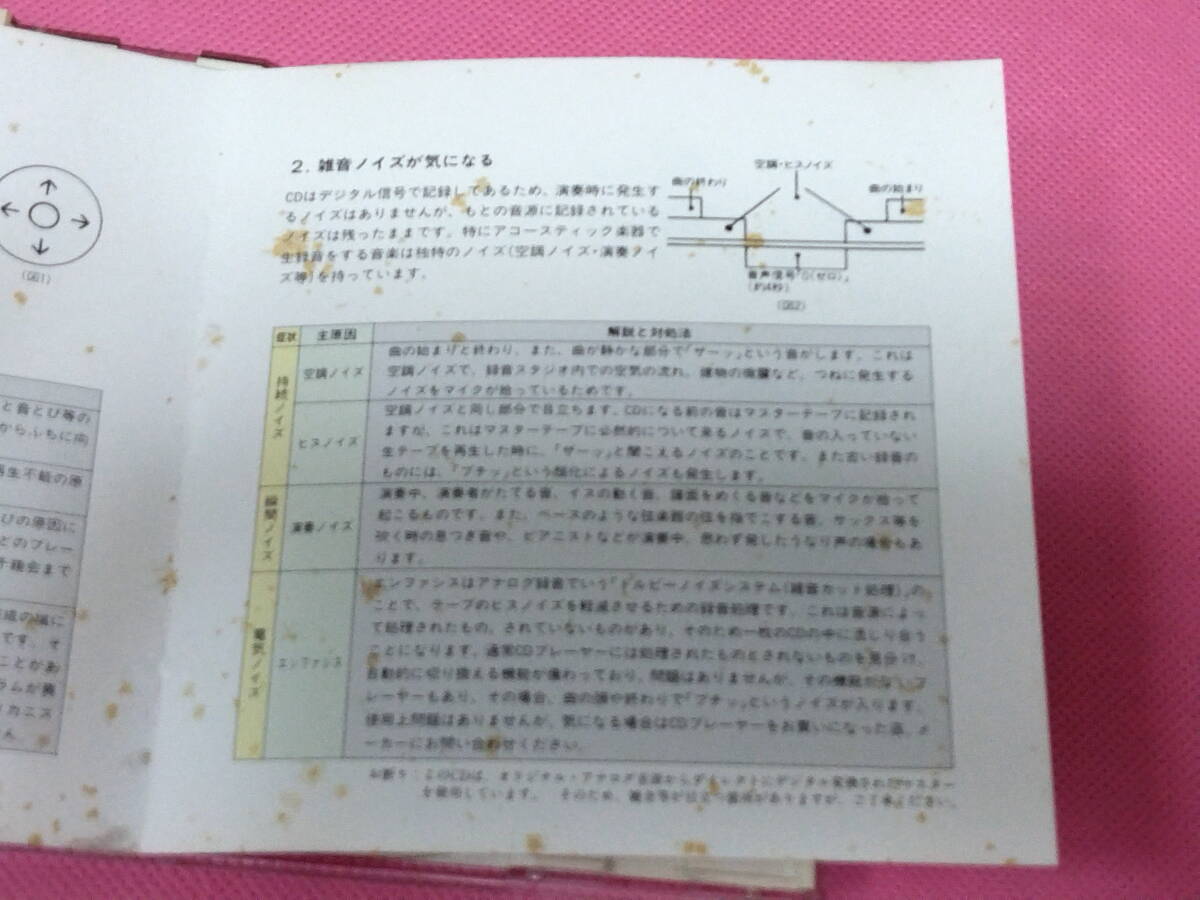 (図1)
と音とび等の
からふちに向
再生不能の原
びの原因に
どのプレー
です。そ
ことがあ
カニス
2. 雑音ノイズが気になる
CDはデジタル信号で記録してあるため、演奏時に発生す
るノイズはありませんが、もとの音源に記録されている
ノイズは残ったままです。特にアコースティック楽器で
生録音をする音楽は独特のノイズ(空調ノイズ・演奏ノイ
ズ等)を持っています。
空調・ヒスノイズ
曲の終わり
曲の始まり
音声信号「0(ゼロ)」
(約4秒)
(図2)
症状 主原因 解説と対処法
持続ノイズ
空調ノイズ
曲の始まりと終わり、また、曲が静かな部分で「ザーッ」という音がします。これは
空調ノイズで、録音スタジオ内での空気の流れ、建物の微震など、つねに発生する
ノイズをマイクが拾っているためです。
ヒスノイズ
空調ノイズと同じ部分で目立ちます。CDになる前の音はマスターテープに記録され
ますが、これはマスターテープに必然的について来るノイズで、音の入っていない
生テープを再生した時に、「ザーッ」と聞こえるノイズのことです。また古い録音の
ものには、「プチッ」という酸化によるノイズも発生します。
瞬間ノイズ
演奏ノイズ
演奏中、演奏者がたてる音、イスの動く音、譜面をめくる音などをマイクが拾って
起こるものです。また、ベースのような弦楽器の弦を指でこする音、サックス等を
吹く時の息つき音や、ピアニストなどが演奏中、思わず発したうなり声の場合もあ
ります。
電気ノイズ
エンファシス
エンファシスはアナログ録音でいう「ドルビーノイズシステム(雑音カット処理)」の
ことで、テープのヒスノイズを軽減させるための録音処理です。これは音源によっ
て処理されたもの、されていないものがあり、そのため一枚のCDの中に混じり合う
ことになります。通常CDプレーヤーには処理されたものとされないものを見分け、
自動的に切り換える機能が備わっており、問題はありませんが、その機能がないプ
レーヤーもあり、その場合、曲の頭や終わりで「プチッ」というノイズが入ります。
使用上問題はありませんが、気になる場合はCDプレーヤーをお買いになった店、メ
ーカーにお問い合わせください。
お断り:このCDは、オリジナル・アナログ音源からダイレクトにデジタル変換されたマスター
を使用しています。 そのため、雑音等が目立つ箇所がありますが、ご了承ください。